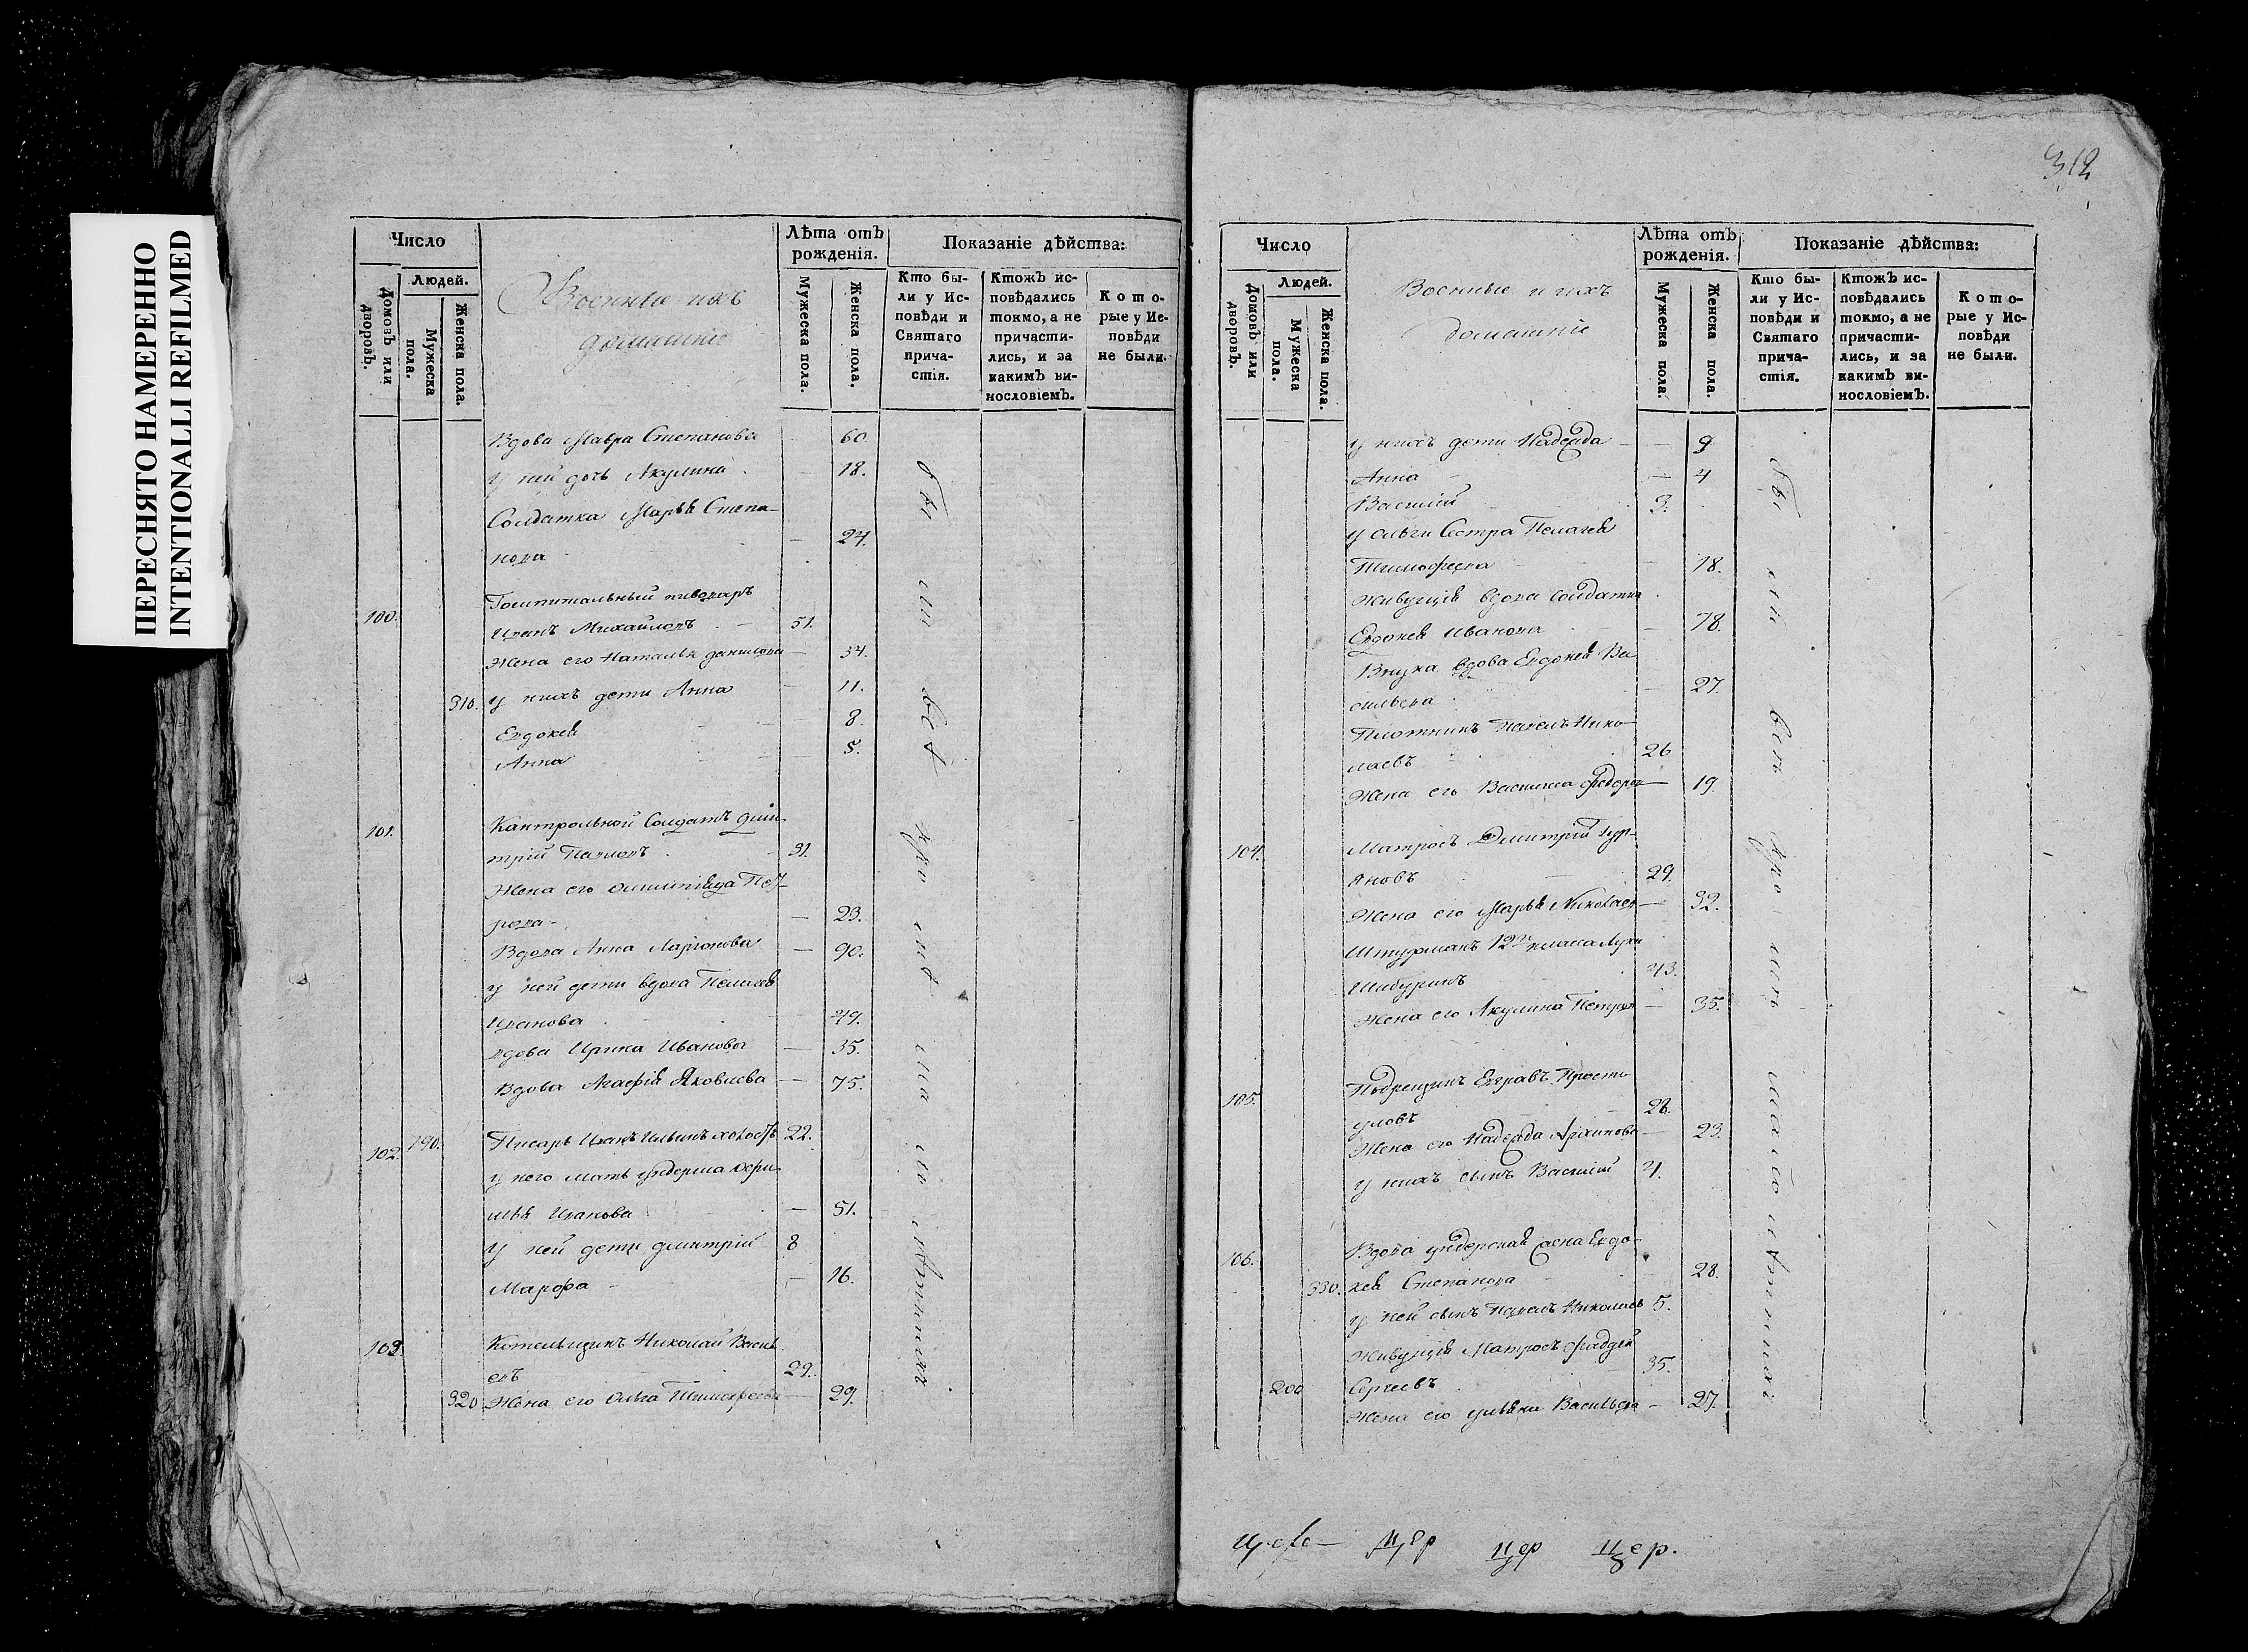 ПЕРЕСНЯТО НАМЕРЕННО
INTENTIONALLI REFILMED
Число
Людей.
Домовъ или дворовъ.
Мужеска пола.
Женска пола.
Военные ихъ
домашніе
Лѣта отъ
рожденія.
Мужеска пола.
Женска пола.
Показаніе дѣйства:
Кто бы-
ли у Ис-
повѣди и
Святаго
прича-
стія.
Ктожъ ис-
повѣдались
токмо, а не
причасти-
лись, и за
какимъ ви-
нословіемъ.
Кото-
рые у Ис-
повѣди
не были.
Вдова Мавра Степанова — 60
У ней дочь Акулина — 18.
Солдатка Марья Степа-
нова — 24.
Гошпитальный пивоваръ
100. Иванъ Михайловъ 51.
Жена его Наталья Данилова — 34.
310. У нихъ дети Анна — 11.
Евдокея 8.
Анна 5.
101. Кантрольной Солдатъ Дми-
трій Павловъ 31.
Жена его Олимпіяда Пет-
рова — 23.
Вдова Анна Ларіонова — 90.
у ней дети вдова Пелагея
Иванова — 49.
вдова Ирина Иванова — 35.
Вдова Агафія Яковлева — 75.
102. 190. Писарь Иванъ Ильинъ холостъ 22.
у него мать ундерша
Иванова — 51.
У ней дети Дмитрій 8
Марфа — 16.
103. Котельщикъ Николай Василь
евъ 29.
320 Жена его Ольга Тимофеева — 29.
312
Число
Людей.
Домовъ или дворовъ.
Мужеска пола.
Женска пола.
Военные и ихъ
домашніе
Лѣта отъ
рожденія.
Мужеска пола.
Женска пола.
Показаніе дѣйства:
Кто бы-
ли у Ис-
повѣди и
Святаго
прича-
стія.
Ктожъ ис-
повѣдались
токмо, а не
причасти-
лись, и за
какимъ ви-
нословіемъ.
Кото-
рые у Ис-
повѣди
не были.
У нихъ дети Надежда — 9
Анна — 4
Василій 3.
у Ольги Сестра Пелагея
Тимофеева — 18.
Живущія вдова солдатка
Евдокея Иванова — 78.
Внука вдова Евдокея Ва
сильева — 27.
Плотникъ Павелъ Нико-
лаевъ 26
Жена его Василиса Федоров — 19.
104. Матросъ Дмитрій Гур-
яновъ 29.
Жена его Марья Николаев — 32.
Штурманъ 12го класа Лука
Шабуринъ 43.
Жена его Акулина Петров — 35.
105. Евграъ Просто
уловъ 28.
Жена его Надежда Архипова — 23.
у нихъ сынъ Василій 4.
106. Вдова ундерская жена Евдо-
330. кея Степанова — 28.
у ней сынъ Павелъ Николаев 5.
Живущія Матросъ Фадѣй
200 Сергеевъ 35.
Жена его Ульяна Васильева — 27.
цер
цер
цер.